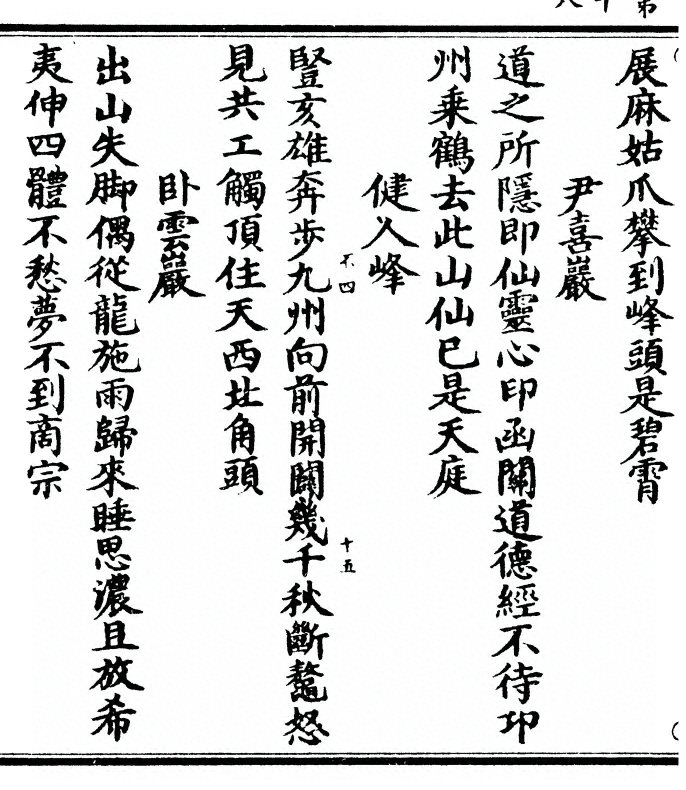 展麻姑爪攀到峰頭是碧霄
尹喜巖
道之所隱即仙靈心印函關道德經不待邛
州乗鶴去此山仙已是天庭
健人峰
不四
十五
豎亥雄奔步九州向前開闢幾千秋斷鼇怒
見共工觸頂住天西北角頭
卧雲巖
出山失脚偶從龍施雨歸來睡思濃且放希
夷伸四體不愁夢不到商宗